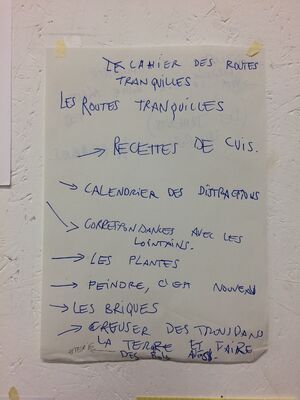 LE CAHIER DES ROUTES
TRANQUILLES
LES ROUTES TRANQUILLES
→ RECETTES DE CUIS.
→ CALENDRIER DES DISTRACTIONS
→ CORRESPONDANCES AVEC LES
LOINTAINS.
→ LES PLANTES
→ PEINDRE, C'EST NOUVEAU
→ LES BRIQUES
→ CREUSER DES TROUS DANS
LA TERRE ET FAIRE
DES